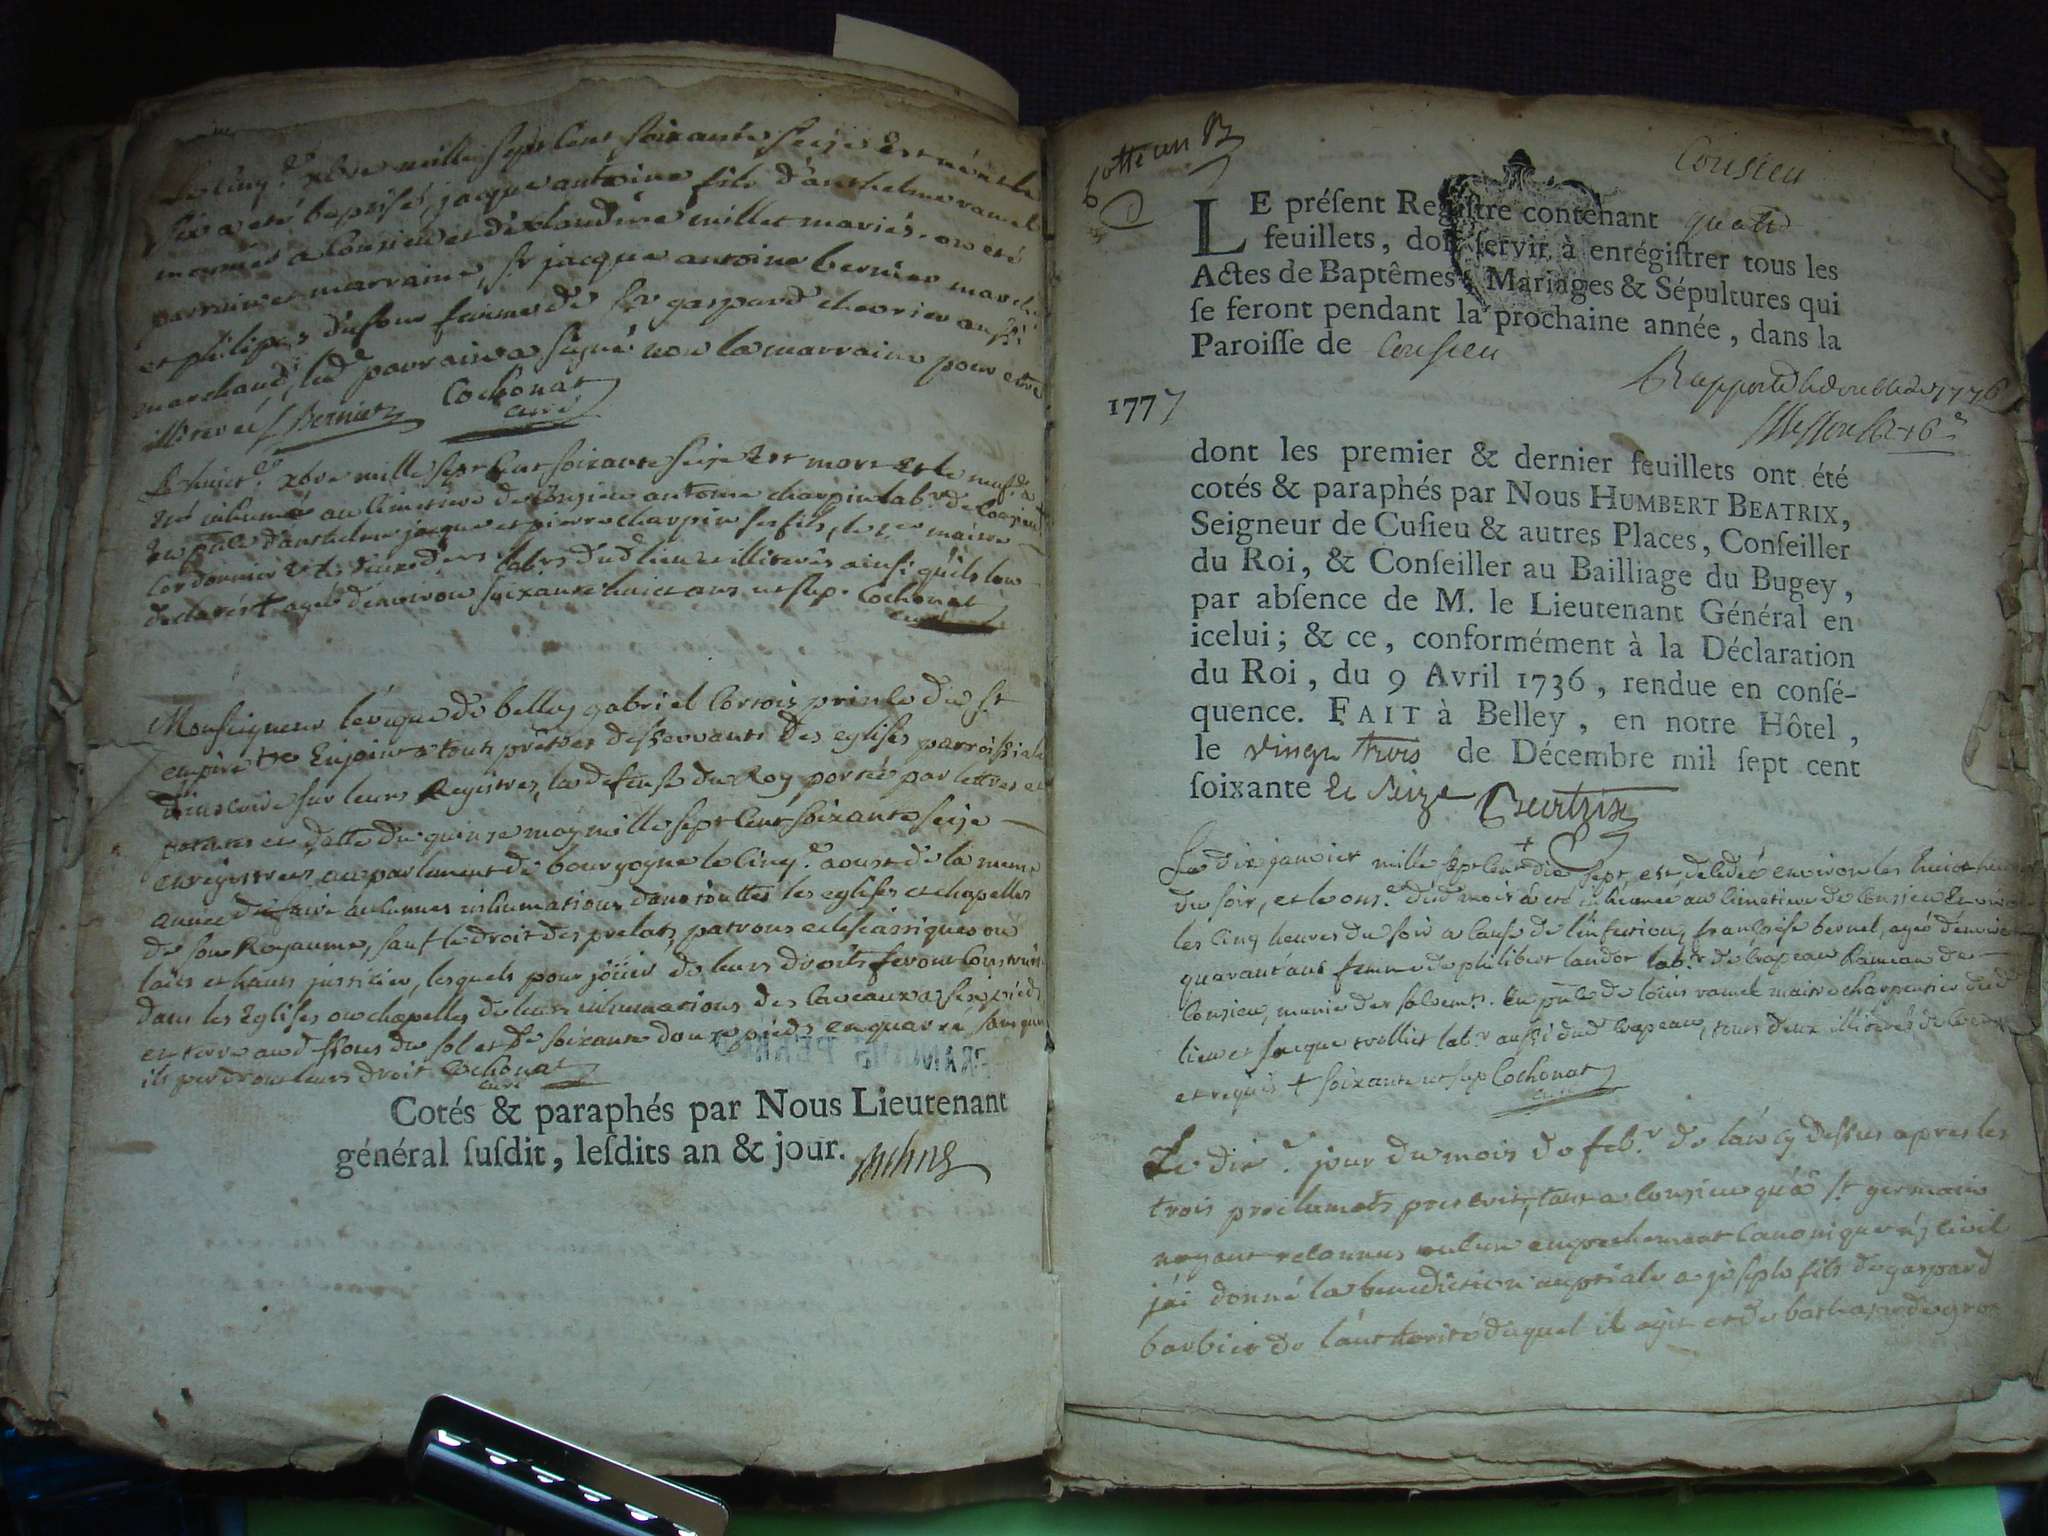 xbre mille sept cent soixante seize est né et le
six a été baptisé, jacque antoine fils d'anthelme ramel
a Consieu et de claudine millet mariés. on été
parrain et marraine, sr jacque antoine bernier march
et philipe dufour femme de sr gaspard chevrier aussi
marchand, led parrain a signé non la marraine pour etre
illiterée / Bernier Cochonat
curé
xbre mille sept cent soixante seize est mort et le
été inhumé au cimetiere de Consieu antoine charpin labr de Consieu
d'anthelme jacque et pierre charpin ses fils, le 1er maitre
cordonnier labrs dud lieu illiterés ainsi qu'ils l'ont
declarés + agé d'environ soixante huict ans Cochonat
curé
Monseigneur léveque de belley gabriel Cortois prince du st
empire Enjoint a tous prêtres desservants des eglises parroissiale
d'inscrire sur leurs Registres la defense du Roy portée par lettres et
patentes en datte du quinze may mille sept cent soixante seize
enregistrées au parlement de bourgogne le cinq.e aoust de la meme
année de faire aucunes inhumations dans touttes les eglises et chapelles
de son Royaume, sauf le droit des prelats, patrons eclesiastiques ou
laïcs et hauts justicier, lesquels pour joüir de leurs droits feront construire
dans les Eglises ou chapelles de leurs inhumations des caveaux a six pieds
en terre au dessous du sol et de soixante douze pieds en quarré sans quoi
ils perdront leurs droit Cochonat
curé
Cotés & paraphés par Nous Lieutenant
général ſuſdit, leſdits an & jour.
Cotte un B
Consieu
LE préſent Regiſtre contenant quatre
feuillets, doit ſervir à enrégiſtrer tous les
Actes de Baptêmes, Mariages & Sépultures qui
ſe feront pendant la prochaine année, dans la
Paroiſſe de Conſieu
Rapporté le double de 1776
1777
dont les premier & dernier feuillets ont été
cotés & paraphés par Nous HUMBERT BEATRIX,
Seigneur de Cuſieu & autres Places, Conſeiller
du Roi, & Conſeiller au Bailliage du Bugey,
par abſence de M. le Lieutenant Général en
icelui; & ce, conformément à la Déclaration
du Roi, du 9 Avril 1736, rendue en conſé-
quence. FAIT à Belley, en notre Hôtel,
le vingt trois de Décembre mil ſept cent
ſoixante & seize Beatrix
Le dix janvier mille sept cent dix sept, est decedée environ les huict heures
du soir, et le onz.e dud mois a été inhumée au cimetiere de Consieu
les cinq heures du soir a cause de l'infection, françoise bernet, agée d'environ
quarant'ans femme de philibert landot labr de Crapeau hameau de
Consieu, munie des sacremts. En pñce de loüis ramel maitre charpentier dud
lieu et jacque trolliet labr aussi dud Crapeau, tous deux illiterés
et requis + soixante Cochonat
curé
Le dix.e jour du mois de febr de l'an cy dessus apres les
trois proclamats prescrits, tant a Consieu qu'a st germain
n'ayant reconnus aucun empechement canonique ny civil
j'ai donné la benediction nuptiale a joseph fils de gaspard
barbier de l'authorité duquel il agit et de